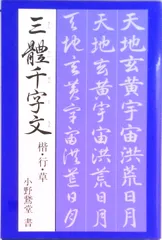 三體千字文
楷・行・草
小野鵞堂 書
天地玄黄宇宙洪荒日月
天地玄黄宇宙洪荒日月
天地玄黄宇宙洪荒日月